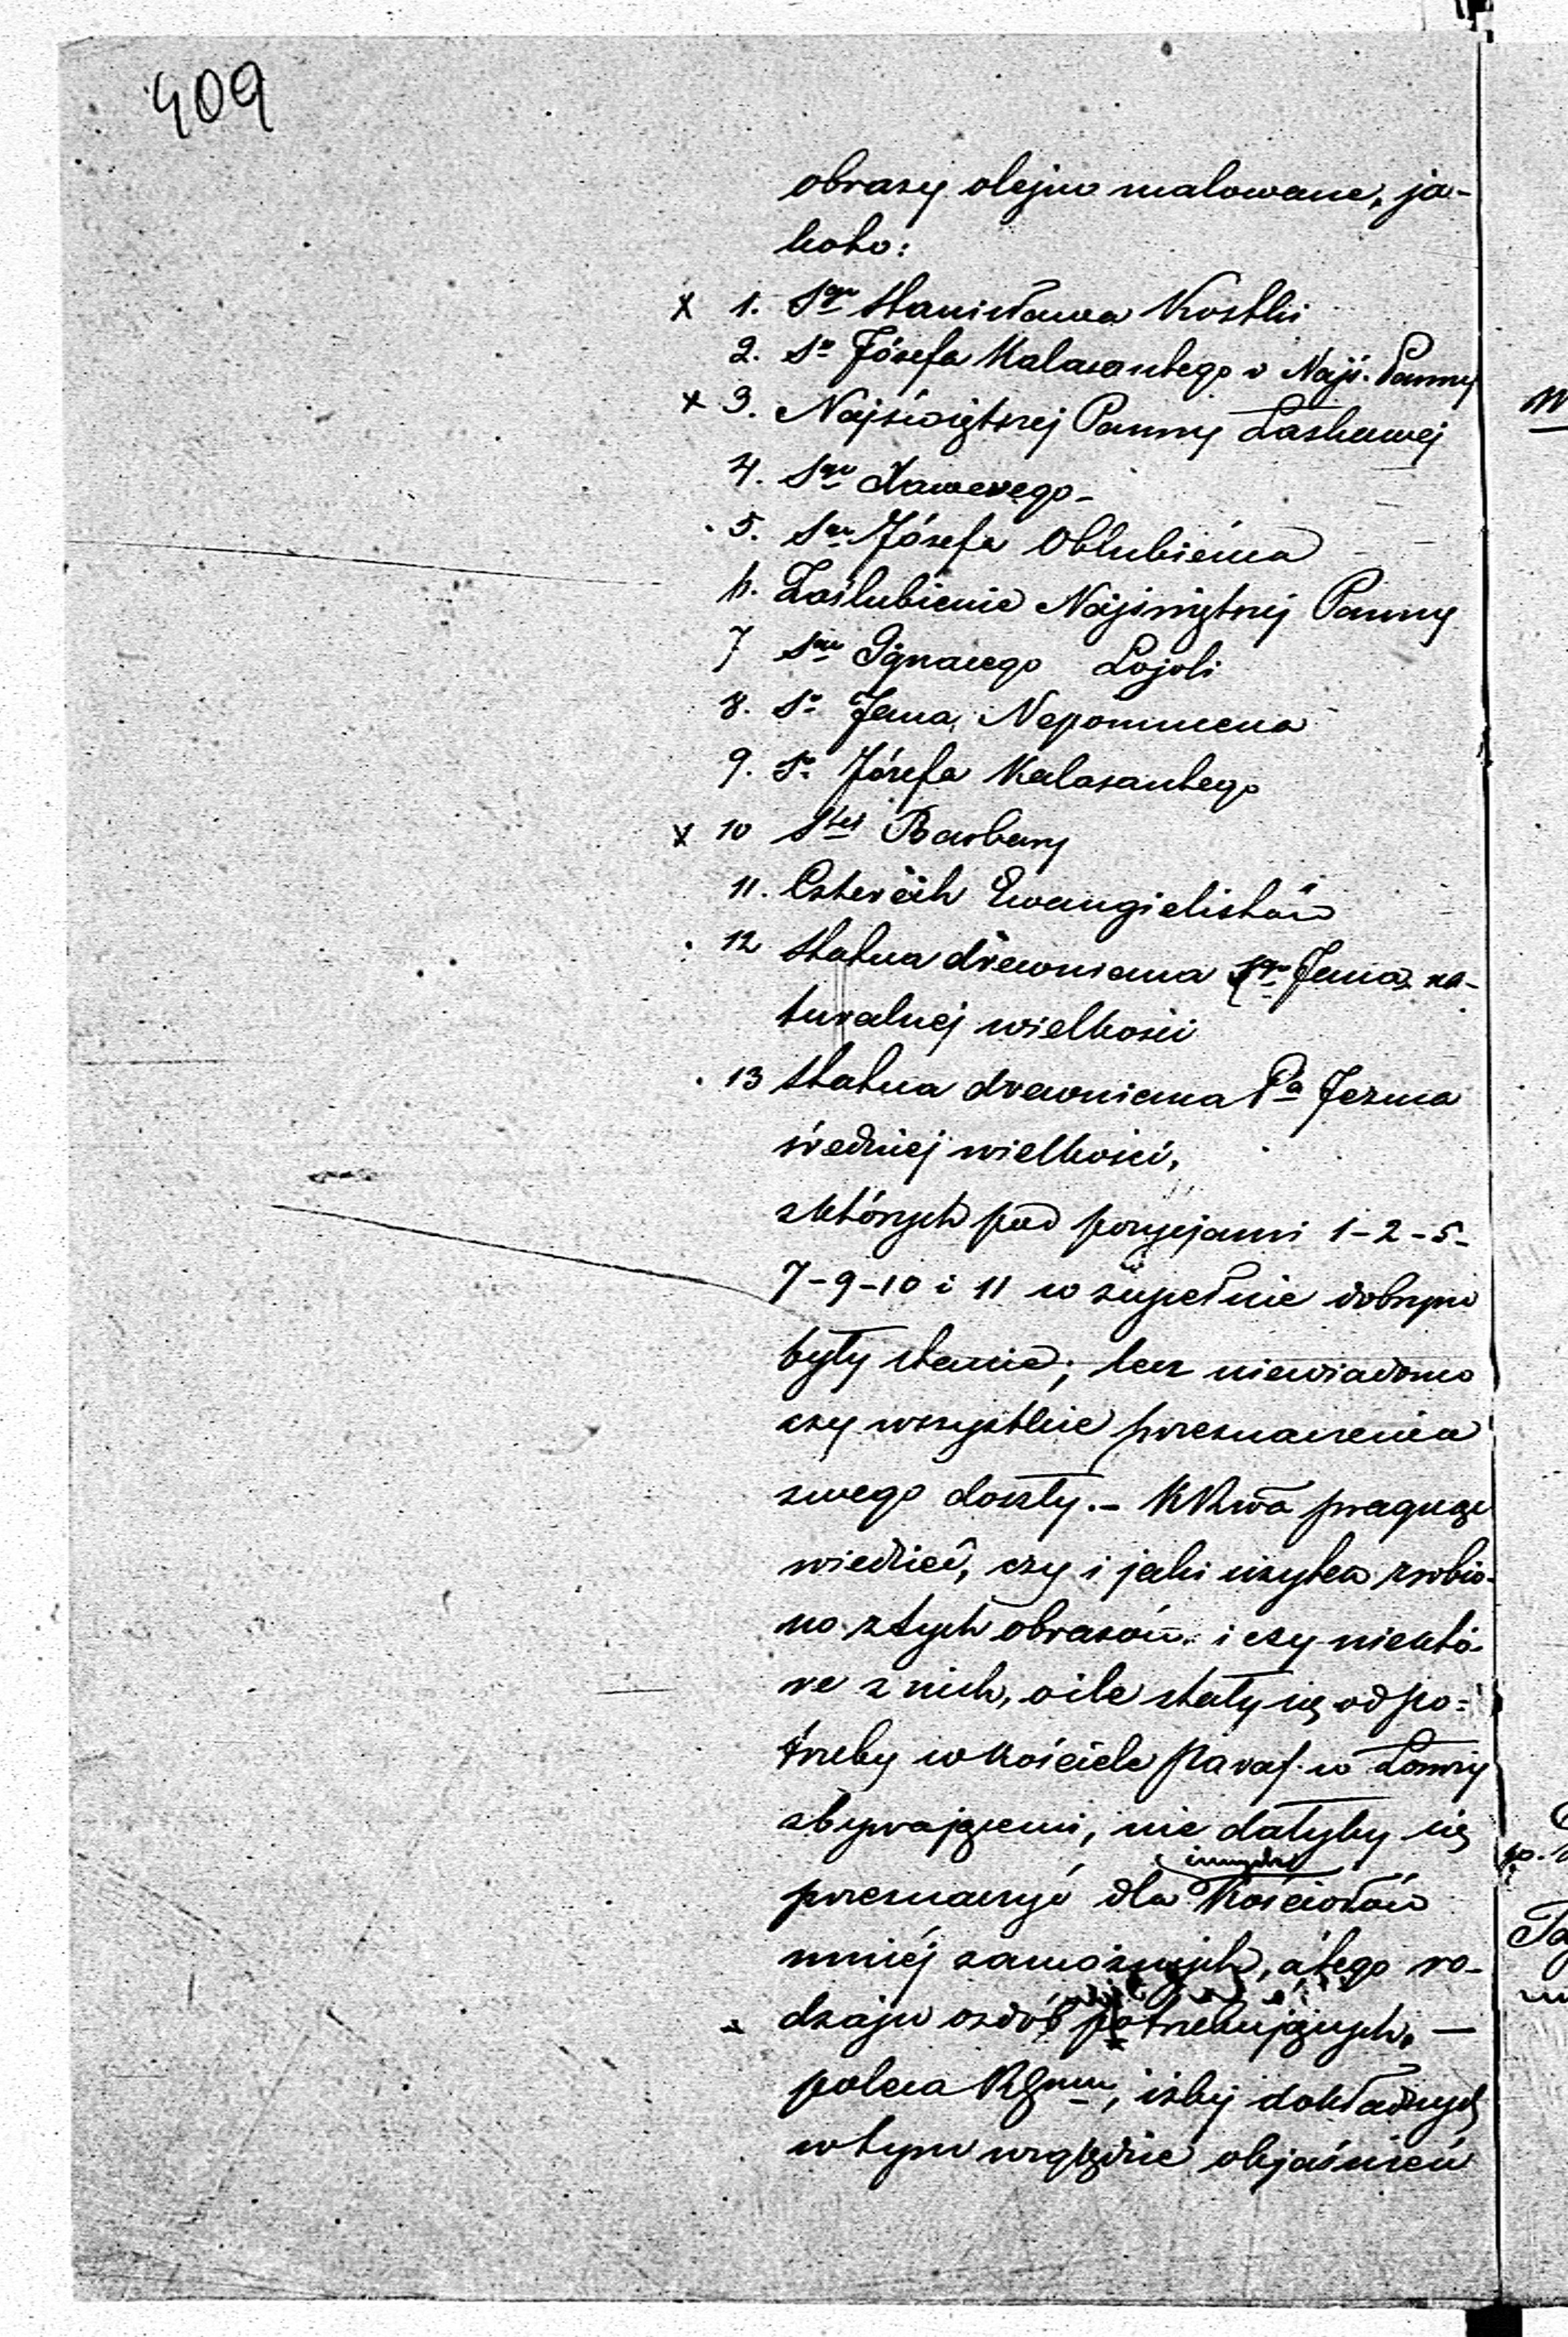 409
obrazy olejno malowane, ja-
koto:
x 1. Sgo Stanisława Kostki
2. So Józefa Kalasantego i Najś. Panny
x 3. Najświętszej Panny Łaskawej
4. Sgo Xawerego -
5. Sgo Józefa Oblubieńca
6. Zaślubienie Najświętszej Panny
7 Sgo Ignacego Lojoli
8. So Jana Nepomucena
9. So Józefa Kalasantego
x 10 Stej Barbary
11. Czterech Ewangielistów
12 Statua drewniana Sgo Jana na-
turalnej wielkości
13 Statua drewniana Pa Jezusa
średniej wielkości,
z których pod pozycjami 1-2-5-
7-9-10 i 11 w zupełnie dobrym
były stanie; lecz niewiadomo
czy wszystkie przeznaczenia
swego doszły. - pragnąc
wiedzieć, czy i jaki użytek zrobio-
no z tych obrazów i czy niektó-
re z nich, o ile stały się od po-
trzeby w Kościele Paraf. w Łomży
zbywającemi, nie dałyby się
innych
przeznaczyć dla Kościołów
mniej zamożnych, a tego ro-
dzaju ozdób potrzebujących, -
poleca , iżby dokładnych
w tym względzie objaśnień